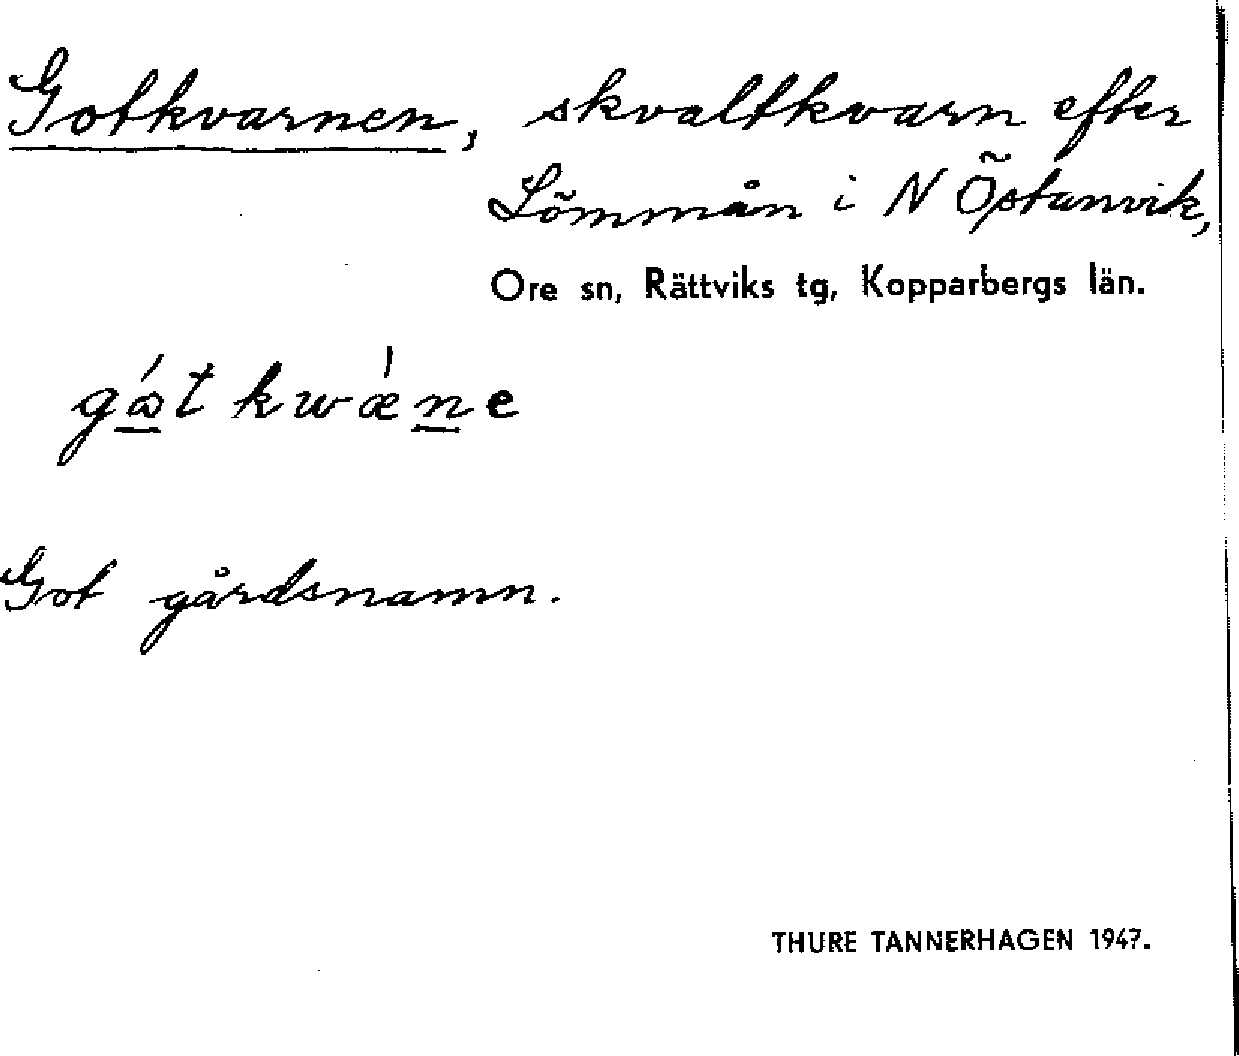 Gotkvarnen, skvaltkvarn efter
Lömmån i N Östanvik,
Ore sn, Rättviks tg, Kopparbergs län.
gɷ́t kwǽne
Got gårdsnamn.
THURE TANNERHAGEN 1947.